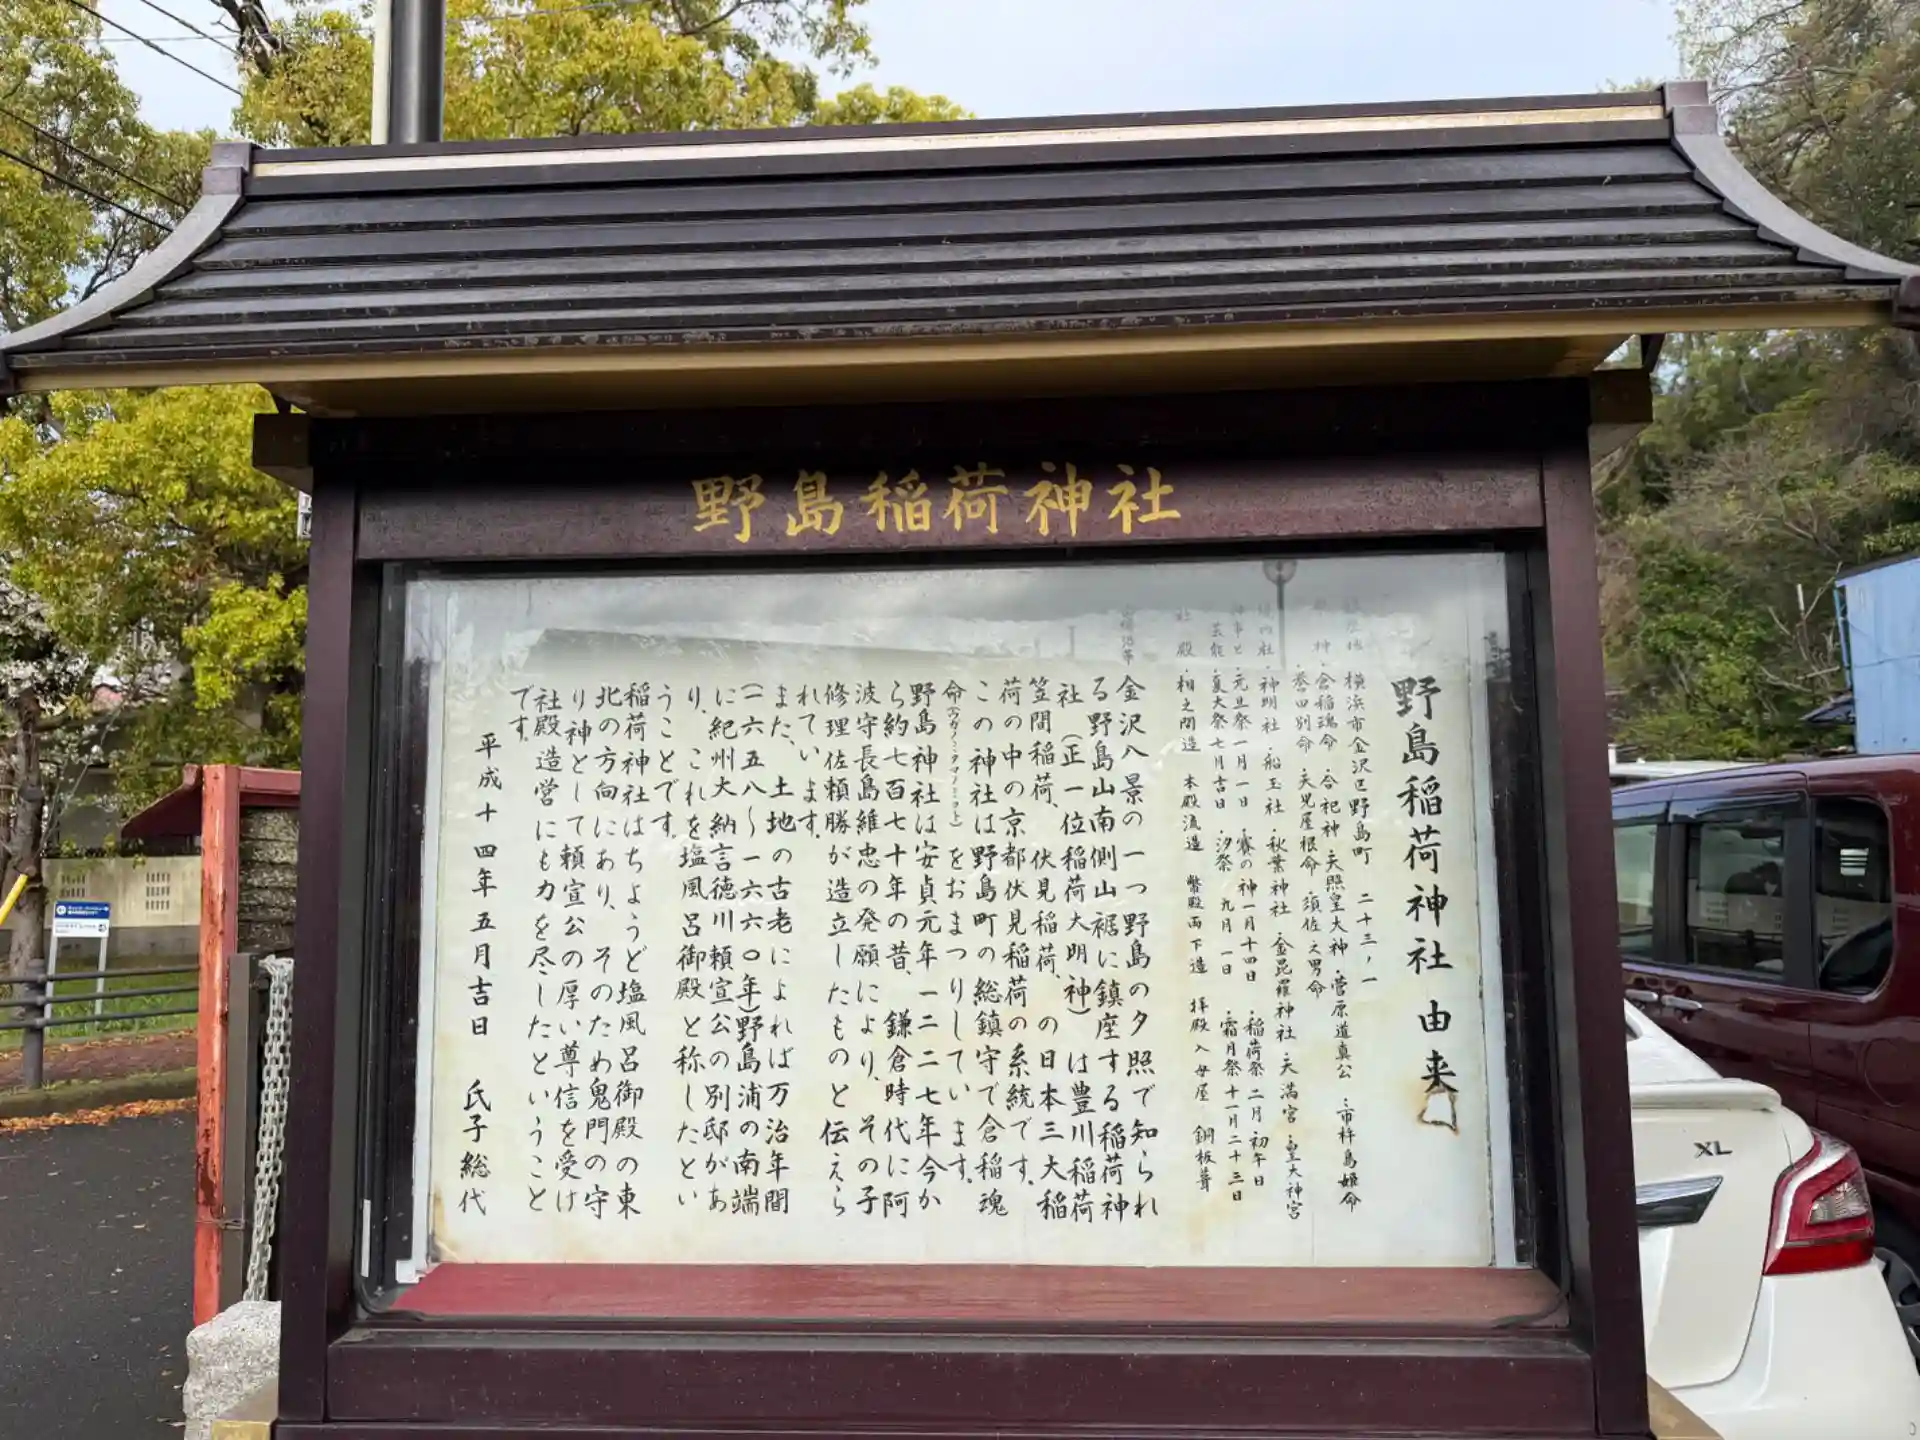 野島稲荷神社
野島稲荷神社由来
横浜市金沢区野島町 二十三ノ一
神・倉稲魂命・合祀神・天照皇大神・菅原道真公・市杵島姫命
・誉田別命・天児屋根命・須佐之男命
社・神明社・船玉社・秋葉神社・金昆羅神社・天満宮・皇大神宮
事と・元旦祭一月一日・賽の神一月十四日・稲荷祭二月初午日
芸能・夏大祭七月吉日・汐祭 九月一日・霜月祭十一月二十三日
社殿・相之間造 本殿流造 幣殿両下造 拝殿入母屋 銅板葺
金沢八景の一つ野島の夕照で知られ
る野島山南側山裾に鎮座する稲荷神
社(正一位稲荷大明神)は豊川稲荷
笠間稲荷、伏見稲荷、の日本三大稲
荷の中の京都伏見稲荷の系統です。
この神社は野島町の総鎮守で倉稲魂
命(ウカノミタマノミコト)をおまつりしています。
野島神社は安貞元年一二二七年今か
ら約七百七十年の昔、鎌倉時代に阿
波守長島維忠の発願により、その子
修理佐頼勝が造立したものと伝えら
れています。
また、土地の古老によれば万治年間
(一六五八〜一六六〇年)野島浦の南端
に紀州大納言徳川頼宣公の別邸があ
り、これを塩風呂御殿と称したとい
うことです。
稲荷神社はちようど塩風呂御殿の東
北の方向にあり、そのため鬼門の守
り神として頼宣公の厚い尊信を受け
社殿造営にも力を尽したということ
です。
平成十四年五月吉日 氏子総代
XL